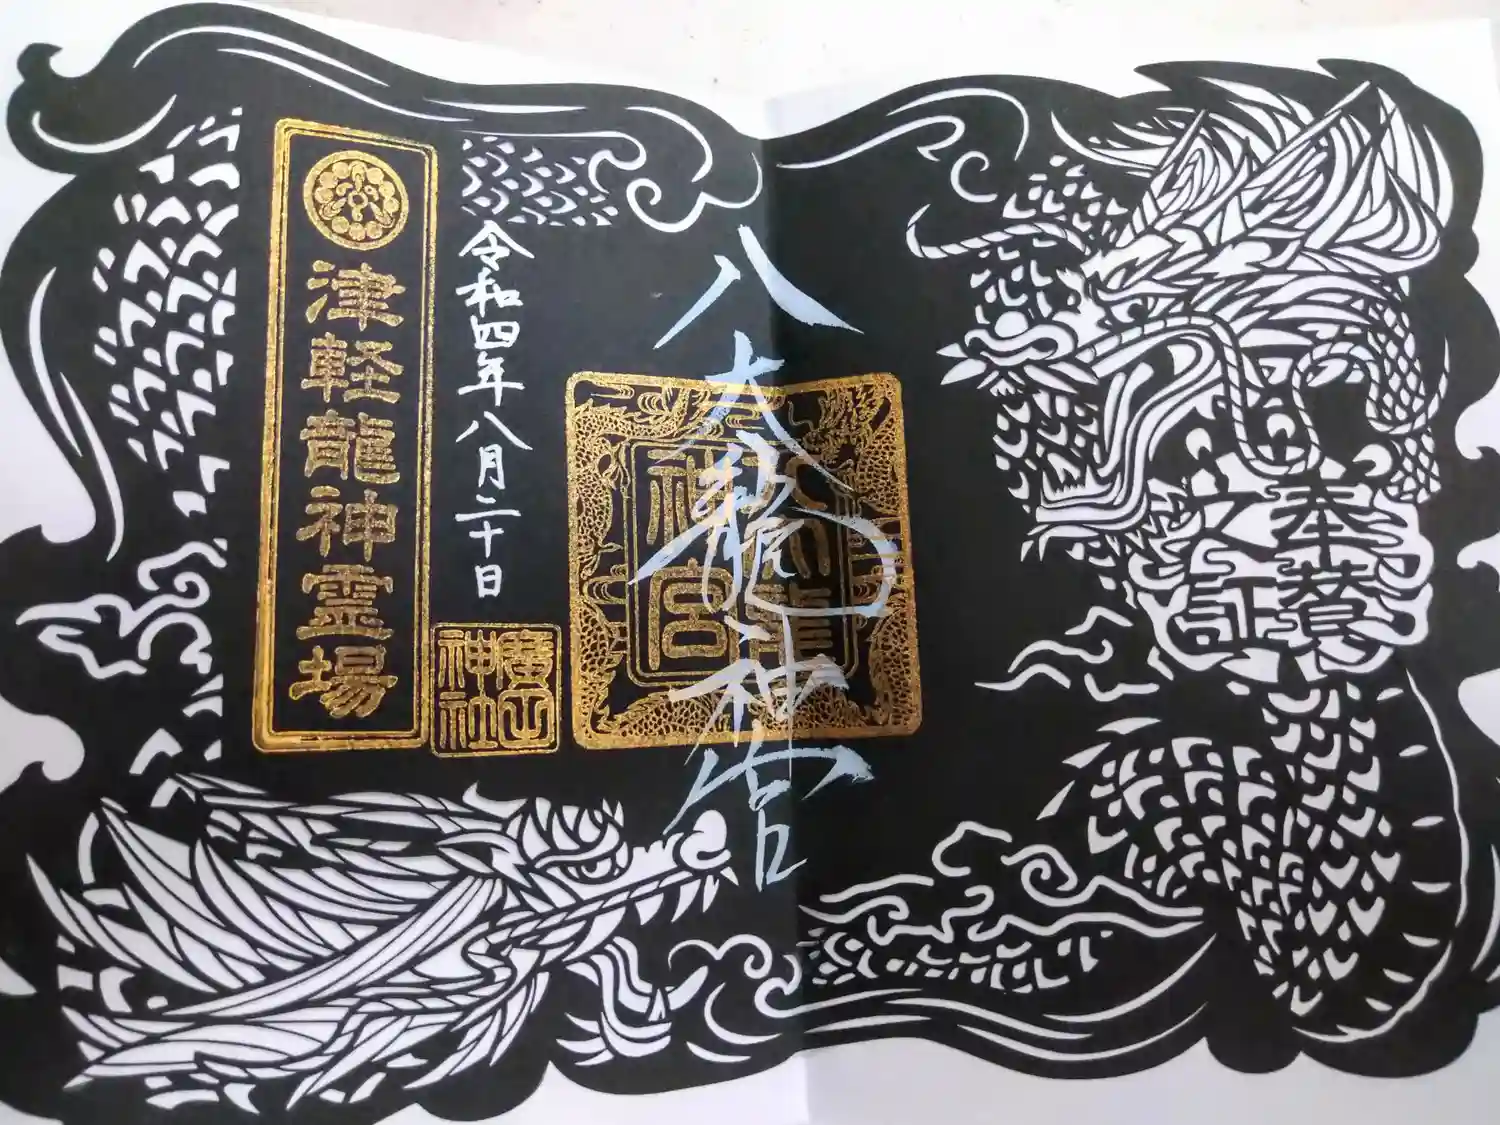 奉賛
之証
八大龍神宮
八大龍
神宮
令和四年八月二十日
廣田
神社
津軽龍神霊場